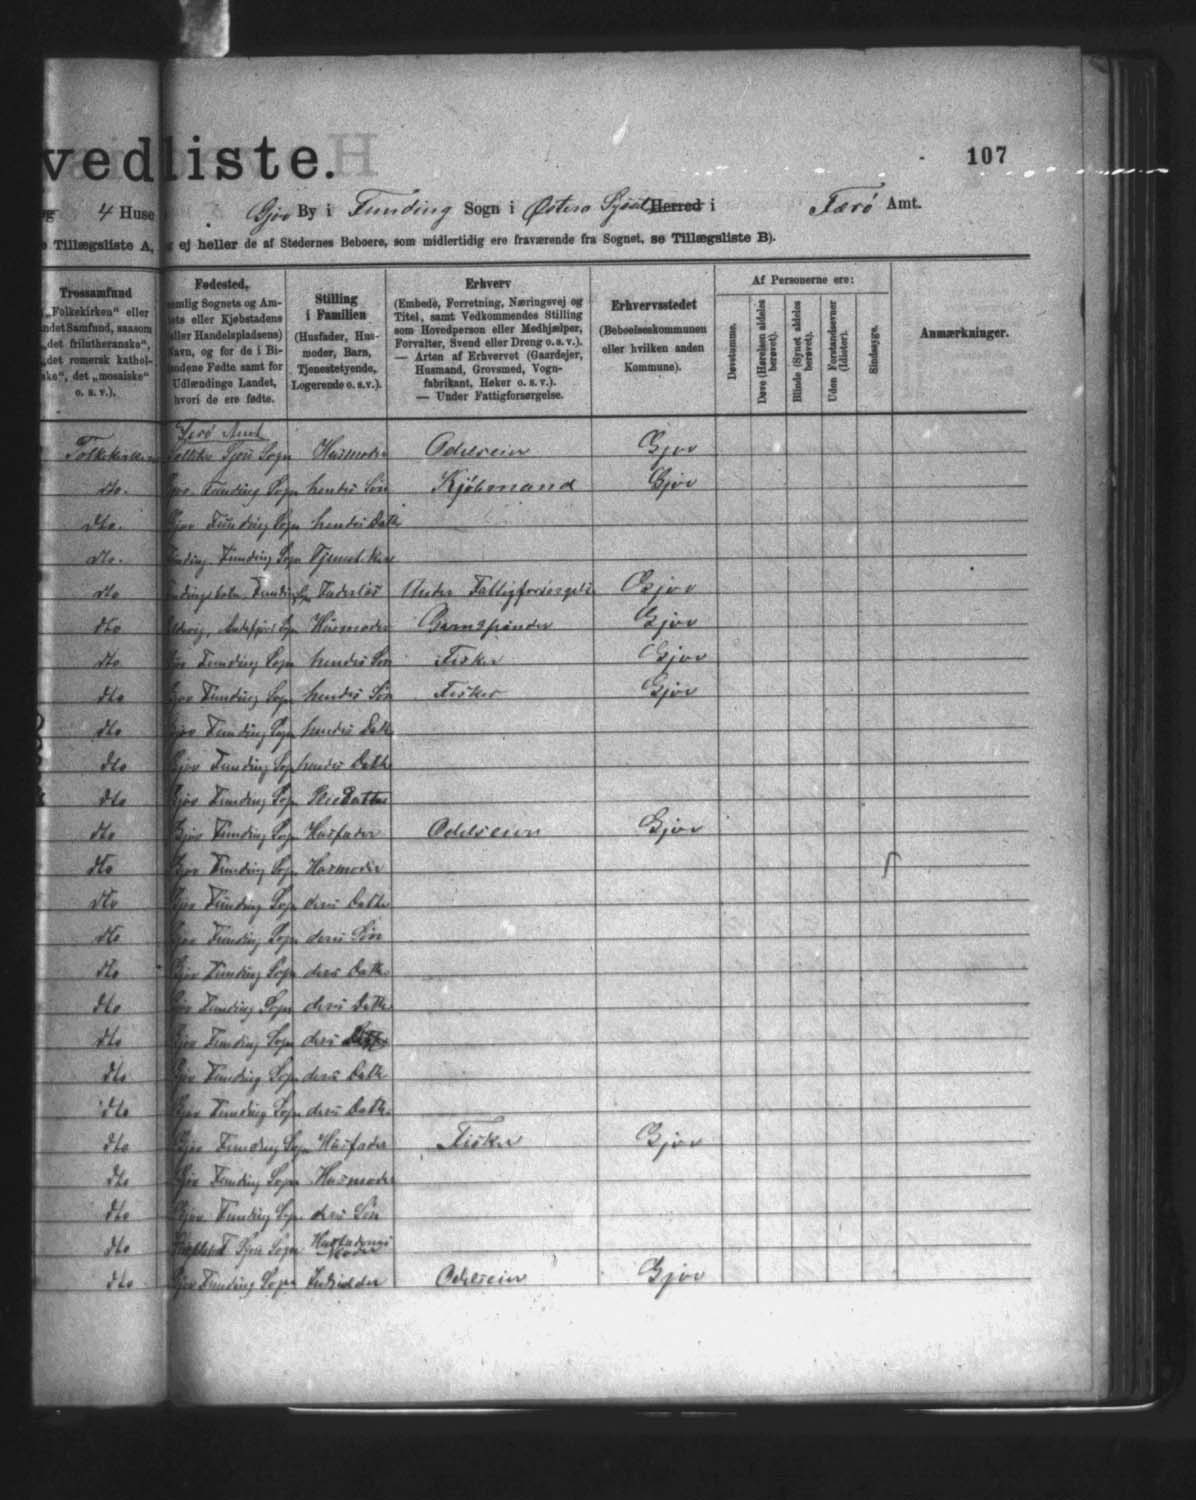 vedliste.
107
og 4 Huse Gjov By i Funding Sogn i Østerø Syssel Herred i Færø Amt.
Tillægsliste A, ej heller de af Stedernes Beboere, som midlertidig ere fraværende fra Sognet, se Tillægsliste B).
Trossamfund
„Folkekirken“ eller
ndet Samfund, saasom
„det frilutheranske“,
„det romersk kathol-
ske“, det „mosaiske“
o. s. v.).
Fødested,
nemlig Sognets og Am-
tets eller Kjøbstadens
eller Handelspladsens)
Navn, og for de i Bi-
landene Fødte samt for
Udlændinge Landet,
hvori de ere fødte.
Stilling
i Familien
(Husfader, Hus-
moder, Barn,
Tjenestetyende,
Logerende o. s. v.).
Erhverv
(Embede, Forretning, Næringsvej og
Titel, samt Vedkommendes Stilling
som Hovedperson eller Medhjælper,
Forvalter, Svend eller Dreng o. s. v.).
— Arten af Erhvervet (Gaardejer,
Husmand, Grovsmed, Vogn-
fabrikant, Høker o. s. v.).
— Under Fattigforsørgelse.
Erhvervsstedet
(Beboelseskommunen
eller hvilken anden
Kommune).
Af Personerne ere:
Døvstumme.
Døve (Hørelsen aldeles
berøvet).
Blinde (Synet aldeles
berøvet).
Uden Forstandsevner
(Idioter).
Sindssyge.
Anmærkninger.
Færø Amt
Folkekirken Sogn Husmoder Odelseier Gjov
do. Gjov Funding Sogn hendes Søn Kjøbmand Gjov
dto. Gjov Funding Sogn hendes Datt
dto. Funding Funding Sogn Tjenest.
dto Funding Under Fattigforsørgelse Gjov
dto Sogn Husmoder Garnspinder Gjov
dto Gjov Funding Sogn hendes Søn Fisker Gjov
dto Gjov Funding Sogn hendes Søn Fisker Gjov
dto Gjov Funding Sogn hendes Datt
dto Gjov Funding Sogn hendes Datte
dto Gjov Funding Sogn
dto Gjov Funding Sogn Husfader Odelseier Gjov
dto Gjov Funding Sogn Husmoder
dto Gjov Funding Sogn deres Datte
dto Gjov Funding Sogn deres Søn
dto Gjov Funding Sogn deres Datte
dto Gjov Funding Sogn deres Datte
dto Gjov Funding Sogn deres
dto Gjov Funding Sogn deres Datte
dto Gjov Funding Sogn deres Datte
dto Gjov Funding Sogn Husfader Fisker Gjov
dto Gjov Funding Sogn Husmoder
dto Gjov Funding Sogn deres Søn
dto Sogn Husfaderens Moder
dto Gjov Funding Sogn Indsidder Odelseier Gjov